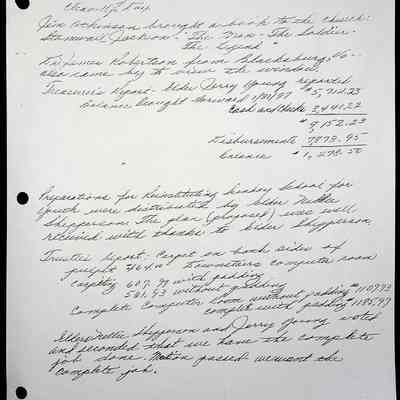 Clean-Up Day
Jim Atkinson brought a book to the church:
Stonewall Jackson - "The Man - The Soldier -
The Legend"
Dr. James Robertson from Blacksburg, Va -
also came by to view the window.
Treasurer's Report - Elder Jerry Young reported
balance brought forward $5,710.23
Cash and Checks 3,441.22
$9,152.23
Disbursements 7873.95
balance $1,278.50
Preparations for Reinstituting Sunday School for
youth were distributed by Elder Nettie
Shepperson. The plan (proposed) was well
received with thanks to Elder Shepperson.
Trustee report: Carpet on both sides of
pulpit Downstairs computer room
carpeting 607.99 with padding
501.93 without padding
Complete Computer Room without padding
complete with padding
Elders Nettie Shepperson and Jerry Young voted
and seconded that we have the complete
job done. Motion passed we want the
complete job.